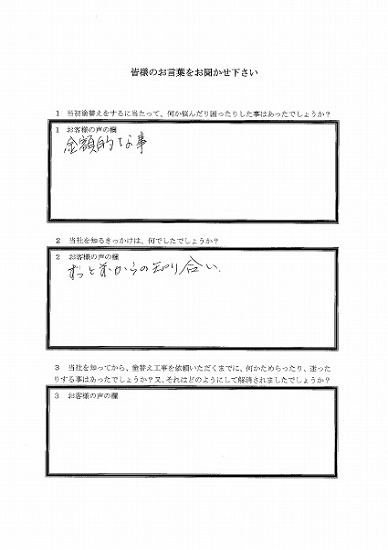 皆様のお言葉をお聞かせ下さい
1 当初塗替えをするに当たって、何か悩んだり困ったりした事はあったでしょうか？
1 お客様の声の欄
金額的な事
2 当社を知るきっかけは、何でしたでしょうか？
2 お客様の声の欄
ずっと前からの知り合い。
3 当社を知ってから、塗替え工事を依頼いただくまでには、何かためらったり、迷った
りする事はあったでしょうか？又、それはどのようにして解消されましたでしょうか？
3 お客様の声の欄